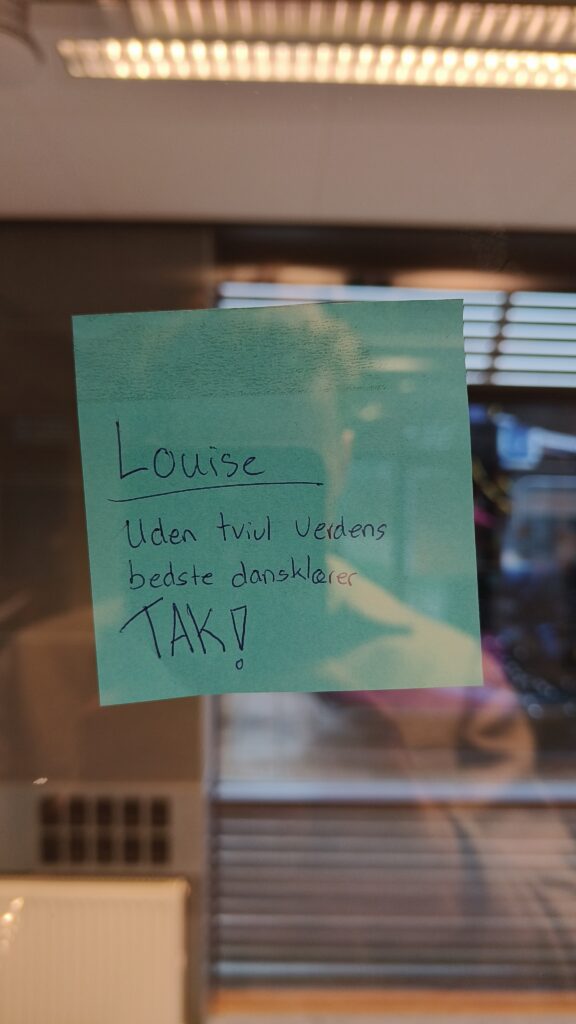 Louise
Uden tvivl verdens
bedste dansklærer
TAK!